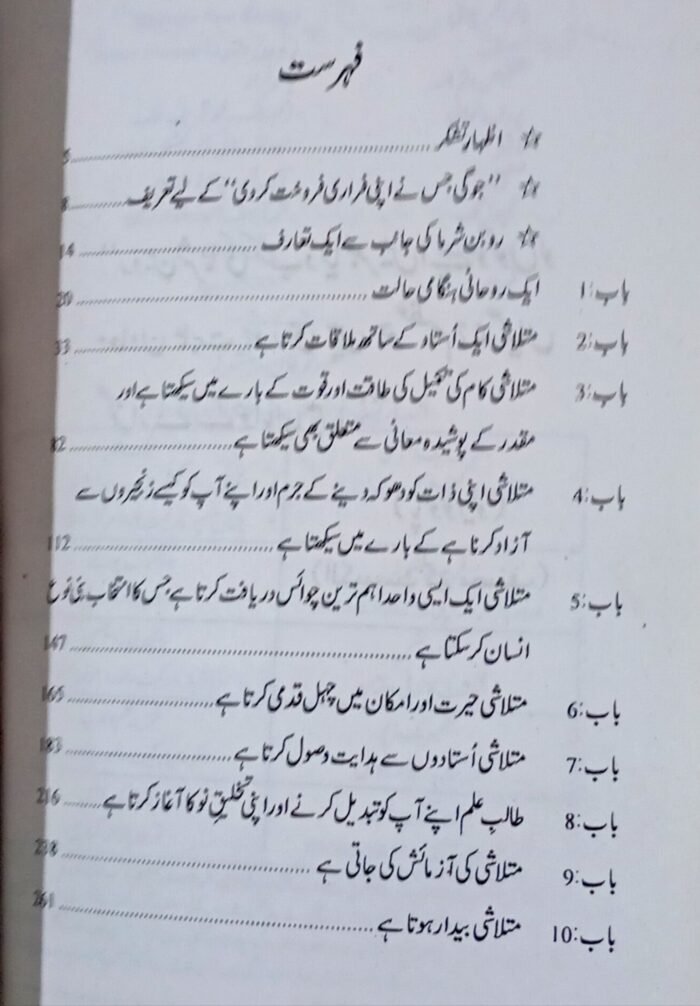 فہرست
☆ اظہارِ تشکر ........ 5
☆ "جوگی جس نے اپنی فراری فروخت کر دی" کے لیے تعریف ........ 8
☆ روبن شرما کی جانب سے ایک تعارف ........ 14
باب:1 ایک روحانی ہنگامی حالت ........ 20
باب:2 متلاشی ایک اُستاد کے ساتھ ملاقات کرتا ہے ........ 33
باب:3 متلاشی کام کی تکمیل کی طاقت اور قوت کے بارے میں سیکھتا ہے اور
مقدر کے پوشیدہ معانی سے متعلق بھی سیکھتا ہے ........ 82
باب:4 متلاشی اپنی ذات کو دھوکہ دینے کے جرم اور اپنے آپ کو کیسے زنجیروں سے
آزاد کرنا ہے کے بارے میں سیکھتا ہے ........ 112
باب:5 متلاشی ایک ایسی واحد اہم ترین چوائس دریافت کرتا ہے جس کا انتخاب بنی نوع
انسان کر سکتا ہے ........ 147
باب:6 متلاشی حیرت اور امکان میں چہل قدمی کرتا ہے ........ 165
باب:7 متلاشی اُستادوں سے ہدایت وصول کرتا ہے ........ 183
باب:8 طالبِ علم اپنے آپ کو تبدیل کرنے اور اپنی تخلیقِ نو کا آغاز کرتا ہے ........ 216
باب:9 متلاشی کی آزمائش کی جاتی ہے ........ 238
باب:10 متلاشی بیدار ہوتا ہے ........ 261